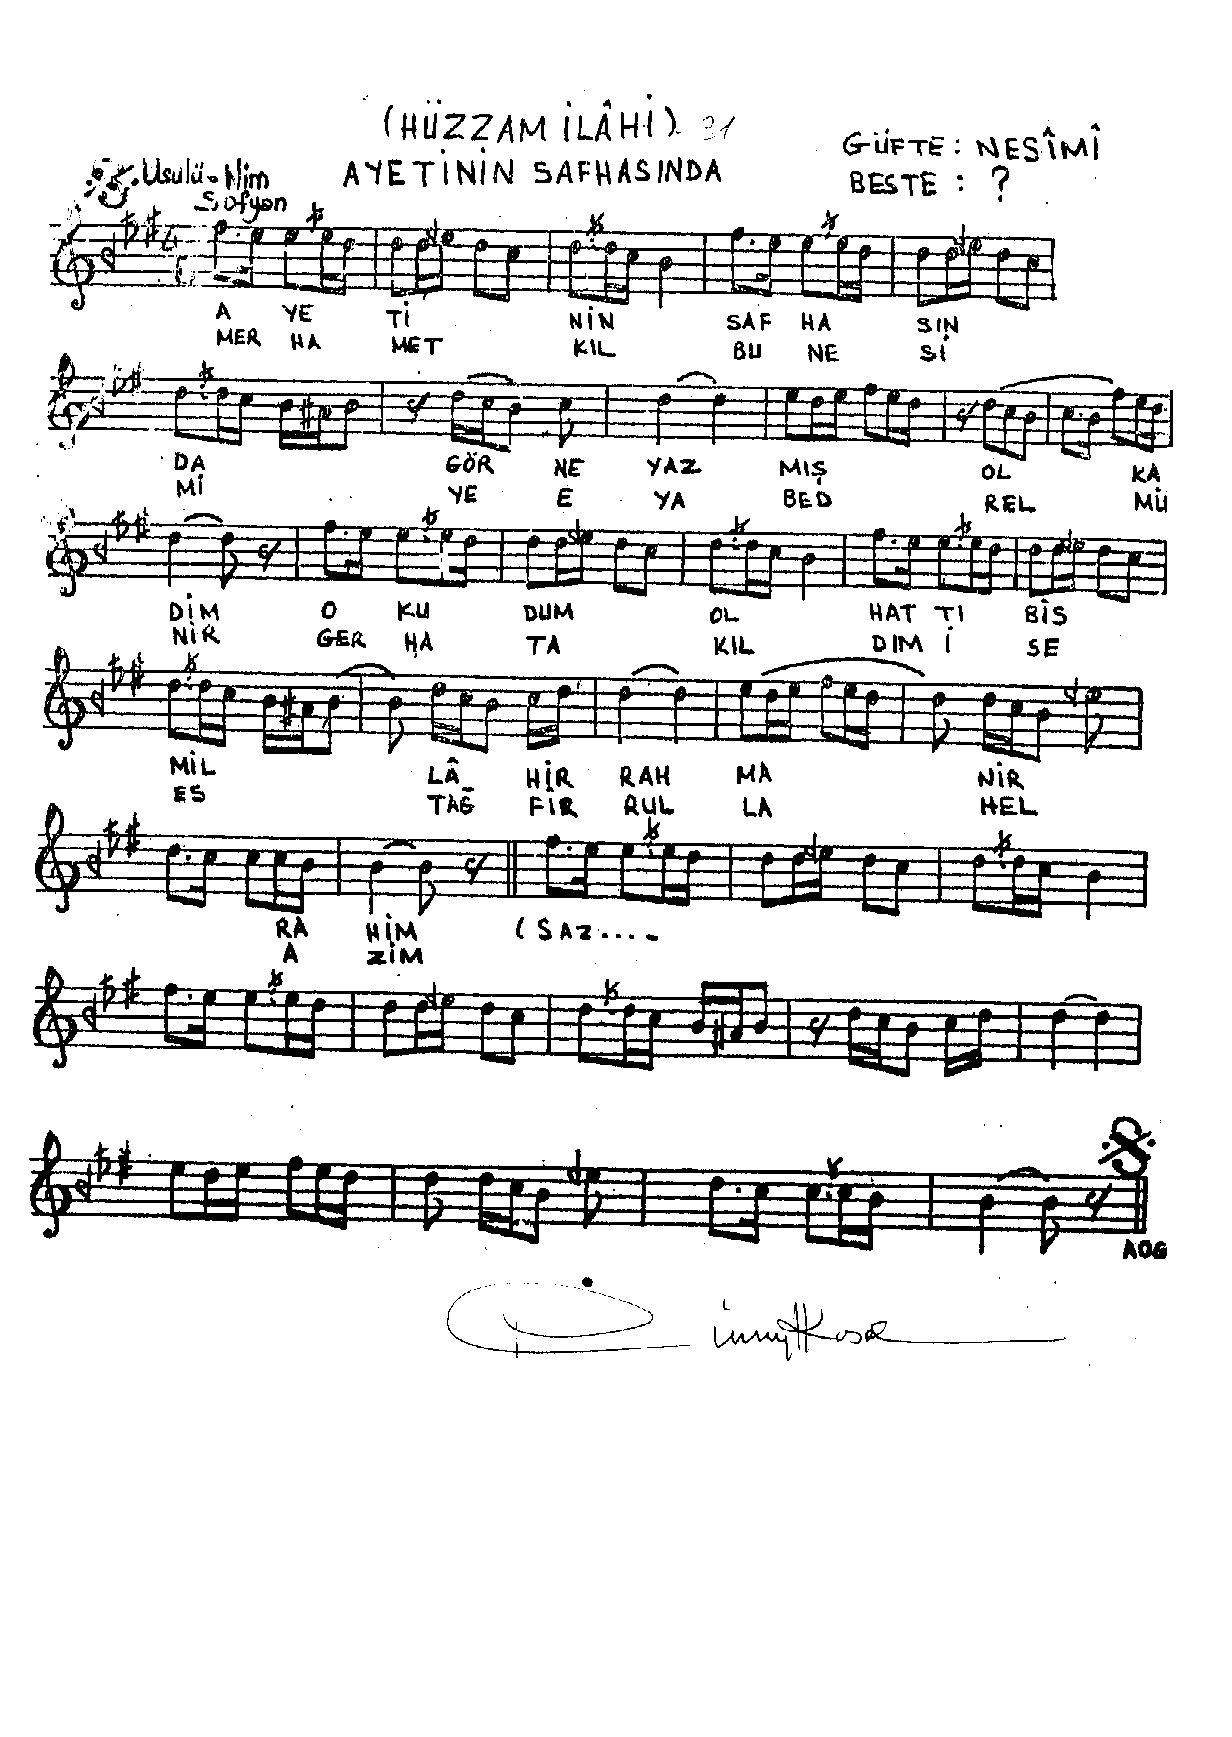 (HÜZZAM İLÂHİ) 31
AYETİNİN SAFHASINDA
GÜFTE : NESÎMÎ
BESTE : ?
Usulü - Nim
Sofyan
A YE Tİ NİN SAF HA SIN
MER HA MET KIL BU NE Sİ
DA GÖR NE YAZ MIŞ OL KA
Mİ YE E YA BED REL MÜ
DİM O KU DUM OL HAT TI BİS
NİR GER HA TA KIL DIM İ SE
MİL LÂ HİR RAH MA NİR
ES TAĞ FİR RUL LA HEL
RA HİM (SAZ....
A ZİM
AOG